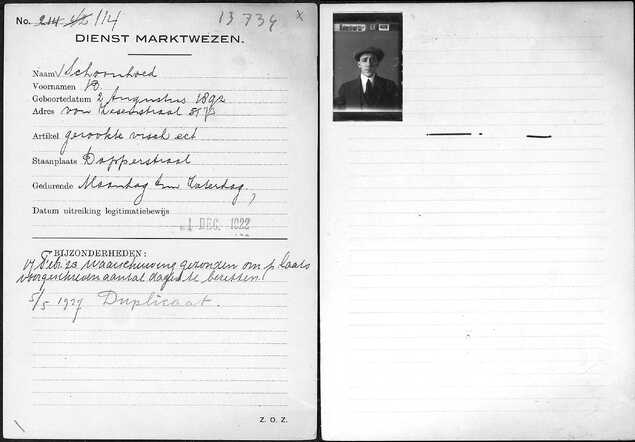 No. 214 1/2 114 13734 x
DIENST MARKTWEZEN.
Naam Schoonhoed
Voornamen B.
Geboortedatum 2 Augustus 1892
Adres von Zesenstraat
Artikel gerookte visch ect
Staanplaats Dapperstraat
Gedurende Maandag t/m Zaterdag
Datum uitreiking legitimatiebewijs 1 DEC. 1922
BIJZONDERHEDEN:
17 Feb. 23 waarschuwing gezonden om plaats
voorgeschreven aantal dagen te bezetten!
5/5 1927 Duplicaat.
Z. O. Z.